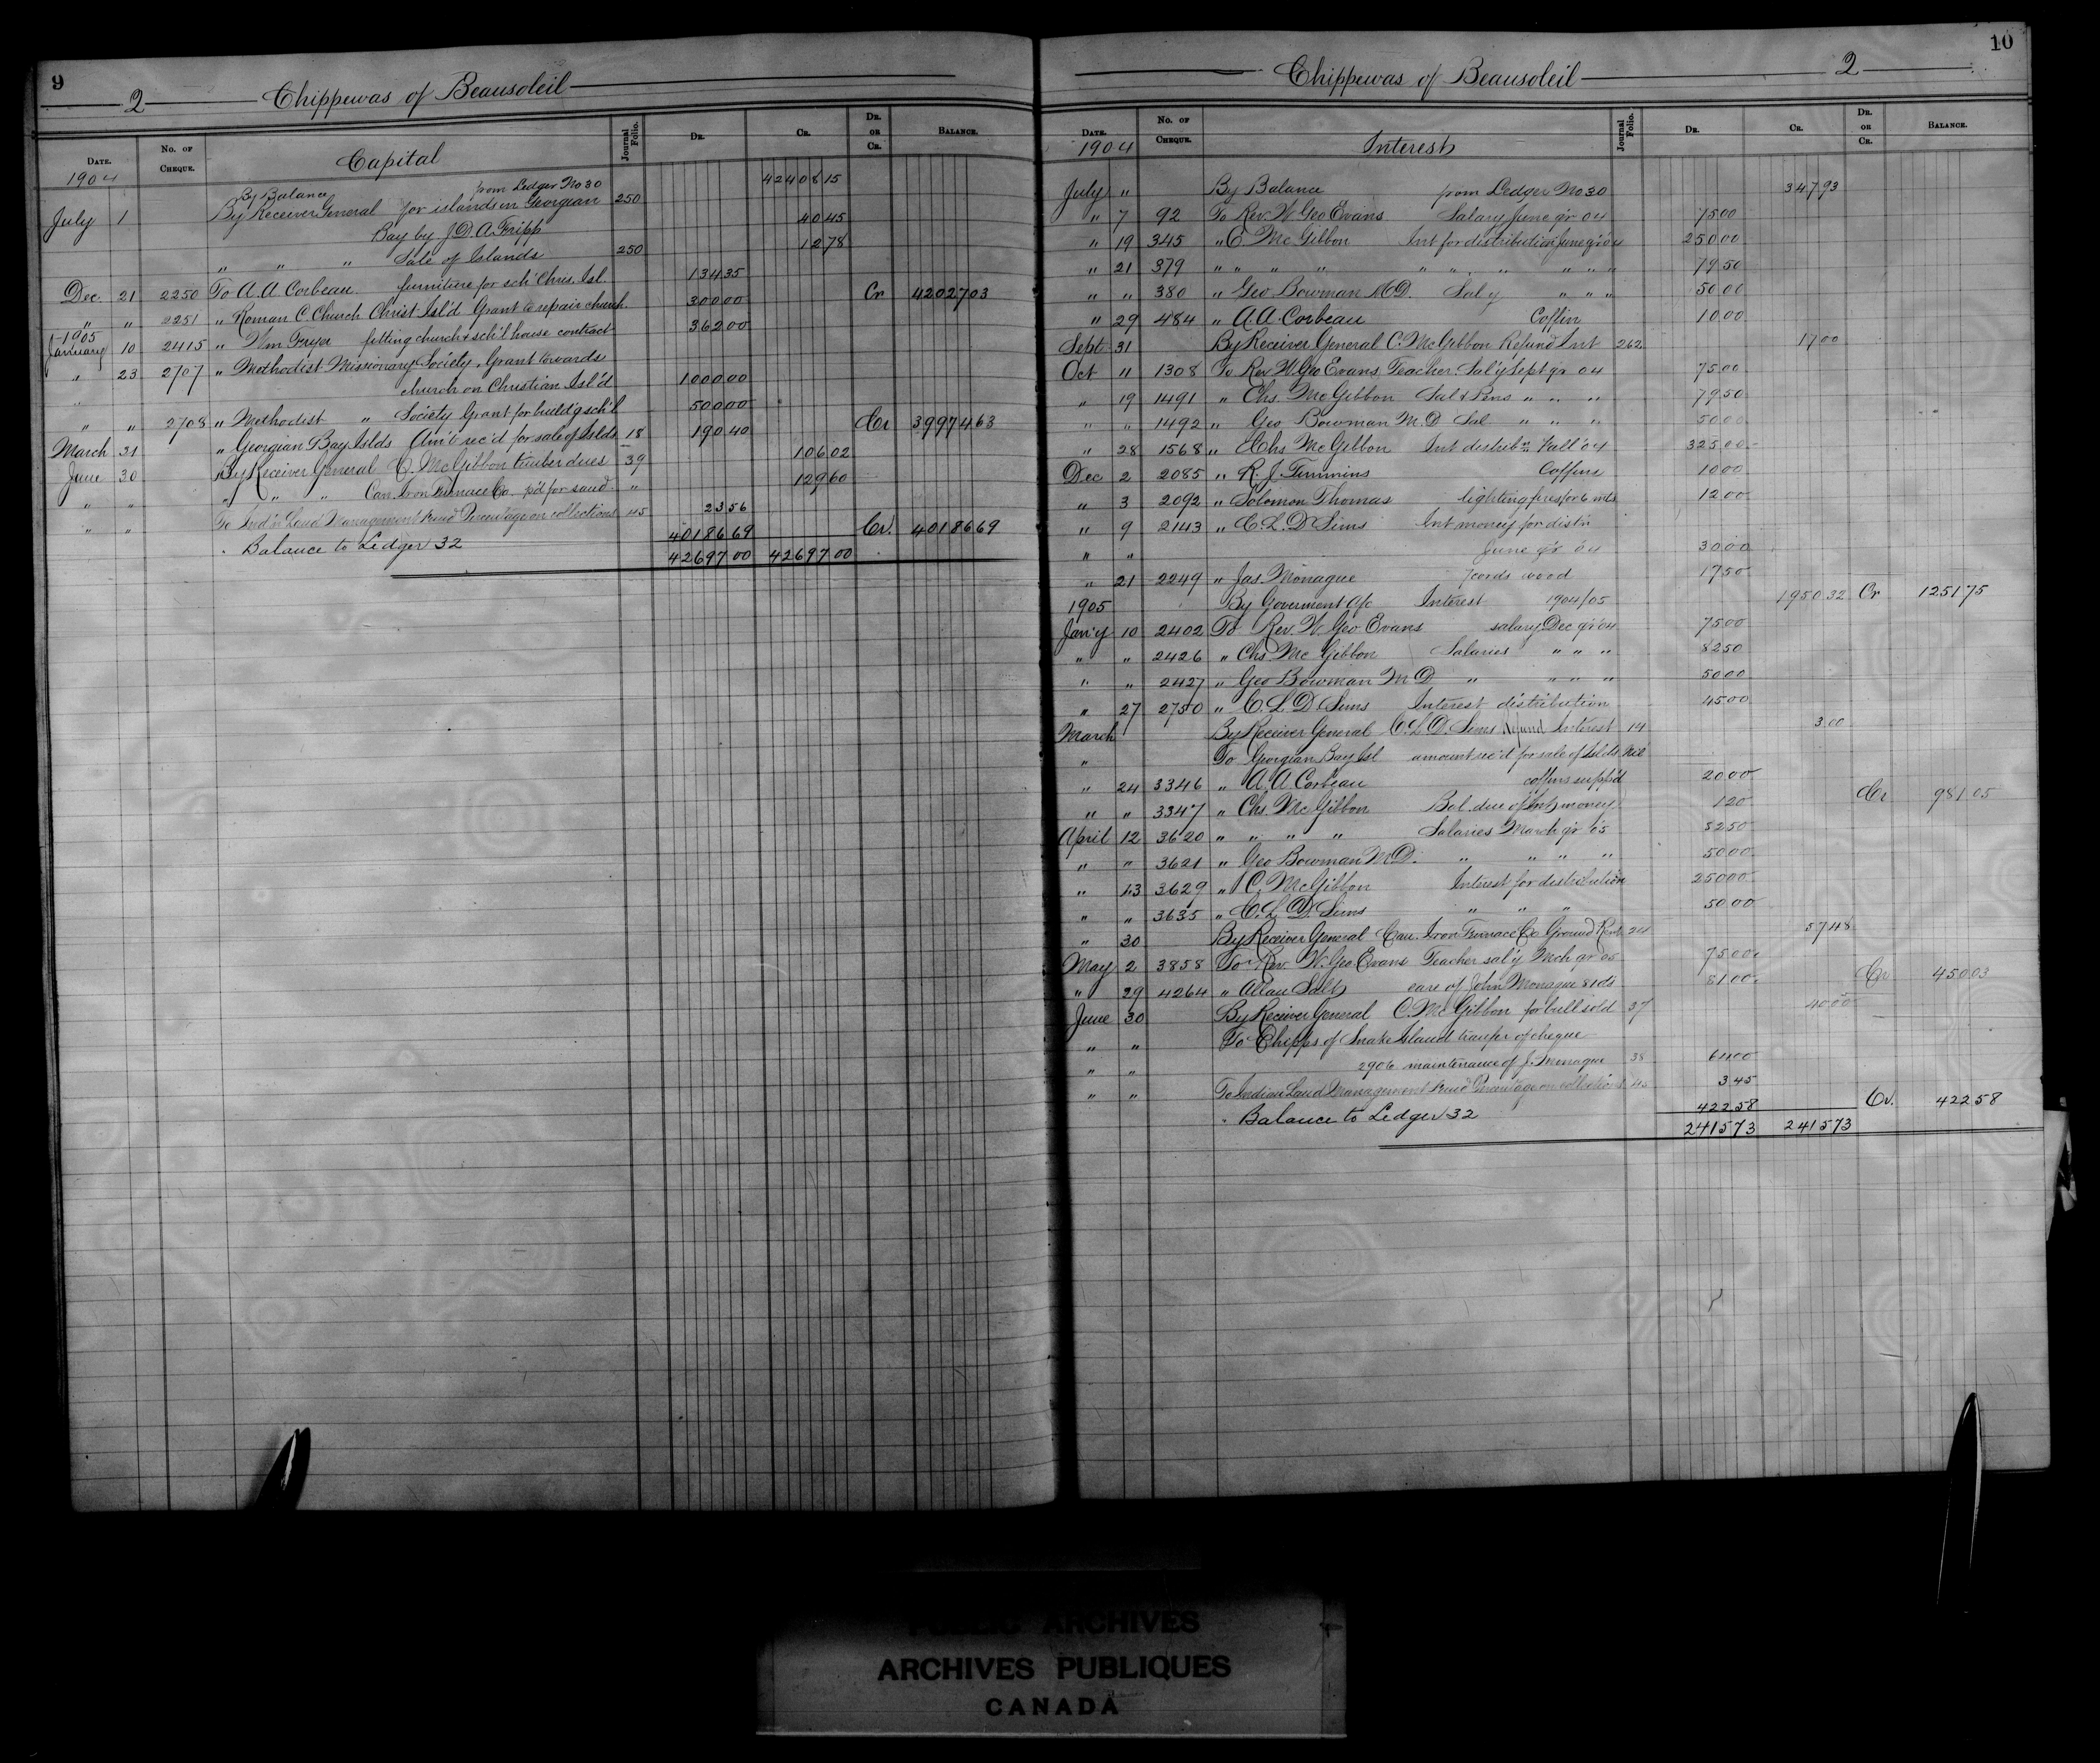 9
2 Chippewas of Beausoleil
Date. No. of Cheque. Capital Journal Folio. Dr. Cr. Dr. or Cr. Balance.
1904
By Balance from Ledger No 30 42408 15
July 1 By Receiver General for islands in Georgian 250
Bay by J. D. A. Tripp 40 45
" " " Sale of Islands 250 12 78
Dec. 21 2250 To A. A. Corbeau furniture for sch. Chris. Isl. 134 35
" " 2251 " Roman C Church Christ Isl'd Grant to repair church 300 00 Cr 42027 03
1905
January 10 2415 " Wm Fryer fitting church & sch'l house contract 362 00
" 23 2707 " Methodist Missionary Society, Grant towards
" church on Christian Isl'd 1000 00
" " 2708 " Methodist " Society Grant for build'g sch'l 500 00
March 31 " Georgian Bay Islds Am't rec'd for sale of Islds 18 190 40 Cr 39974 63
June 30 By Receiver General C. McGibbon timber dues 39 106 02
" " " " " Can. Iron Furnace Co. p'd for sand " 129 60
" " To Ind'n Land Management Fund Percentage on collections 45 23 56
Balance to Ledger 32 40186 69 Cr. 40186 69
42697 00 42697 00
10
Chippewas of Beausoleil 2
Date. No. of Cheque. Interest Journal Folio. Dr. Cr. Dr. or Cr. Balance.
1904
July " By Balance from Ledger No 30 347 93
" 7 92 To Rev. W. Geo Evans Salary June qr 04 75 00
" 19 345 " C. McGibbon Int for distribution June qr 04 250 00
" 21 379 " " " " " " " " " " 79 50
" " 380 " Geo. Bowman M.D. Sal'y " " " 50 00
" 29 484 " A. A. Corbeau Coffin 10 00
Sept 31 By Receiver General C. McGibbon Refund Int 262 17 00
Oct " 1308 To Rev W. Geo Evans Teacher Sal'y Sept qr 04 75 00
" 19 1491 " Chs. McGibbon Sal & Pens " " " 79 50
" " 1492 " Geo Bowman M.D Sal " " " 50 00
" 28 1568 " Chs McGibbon Int distrib'n Fall '04 325 00
Dec 2 2085 " R. J. Timmins Coffins 10 00
" 3 2092 " Solomon Thomas lighting fires for 6 mts 12 00
" 9 2143 " C. L. D Sims Int money for distn
" " June qr 04 30 00
" 21 2249 " Jas. Monague cords wood 17 50
1905 By Goverment a/c Interest 1904/05 1950 32 Cr 1251 75
Jan'y 10 2402 To Rev. W. Geo Evans salary Dec qr 04 75 00
" " 2426 " Chs. McGibbon Salaries " " " 82 50
" " 2427 " Geo Bowman M D " " " " 50 00
" 27 2750 " C. L. D Sims Interest distribution 45 00
March By Receiver General C. L. D. Sims Refund Interest 14 3 00
" To Georgian Bay Isl amount rec'd for sale of Islds Nil
" 24 3346 " A. A Corbeau coffins suppd 20 00
" " 3347 " Chs. McGibbon Bal. due of Int money 1 20 Cr 981 05
April 12 3620 " " " " Salaries March qr 05 82 50
" " 3621 " Geo Bowman M.D. " " " " 50 00
" 13 3629 " C. McGibbon Interest for distribution 250 00
" " 3635 " C. L. D. Sims " " " 50 00
" 30 By Receiver General Can. Iron Furnace Co Ground Rent 24 57 48
May 2 3858 To Rev. W. Geo Evans Teacher sal'y Mch qr 05 75 00
" 29 4264 " Allan Salt care of John Monague 81 ds 81 00 Cr 450 03
June 30 By Receiver General C. McGibbon for bull sold 37 40 00
" " To Chipps of Snake Island transfer of cheque
" " 2906 maintenance of J. Monague 38 64 00
" " To Indian Land Management Fund Percentage on collections 45 3 45
Balance to Ledger 32 422 58 Cr. 422 58
2415 73 2415 73
PUBLIC ARCHIVES
ARCHIVES PUBLIQUES
CANADA